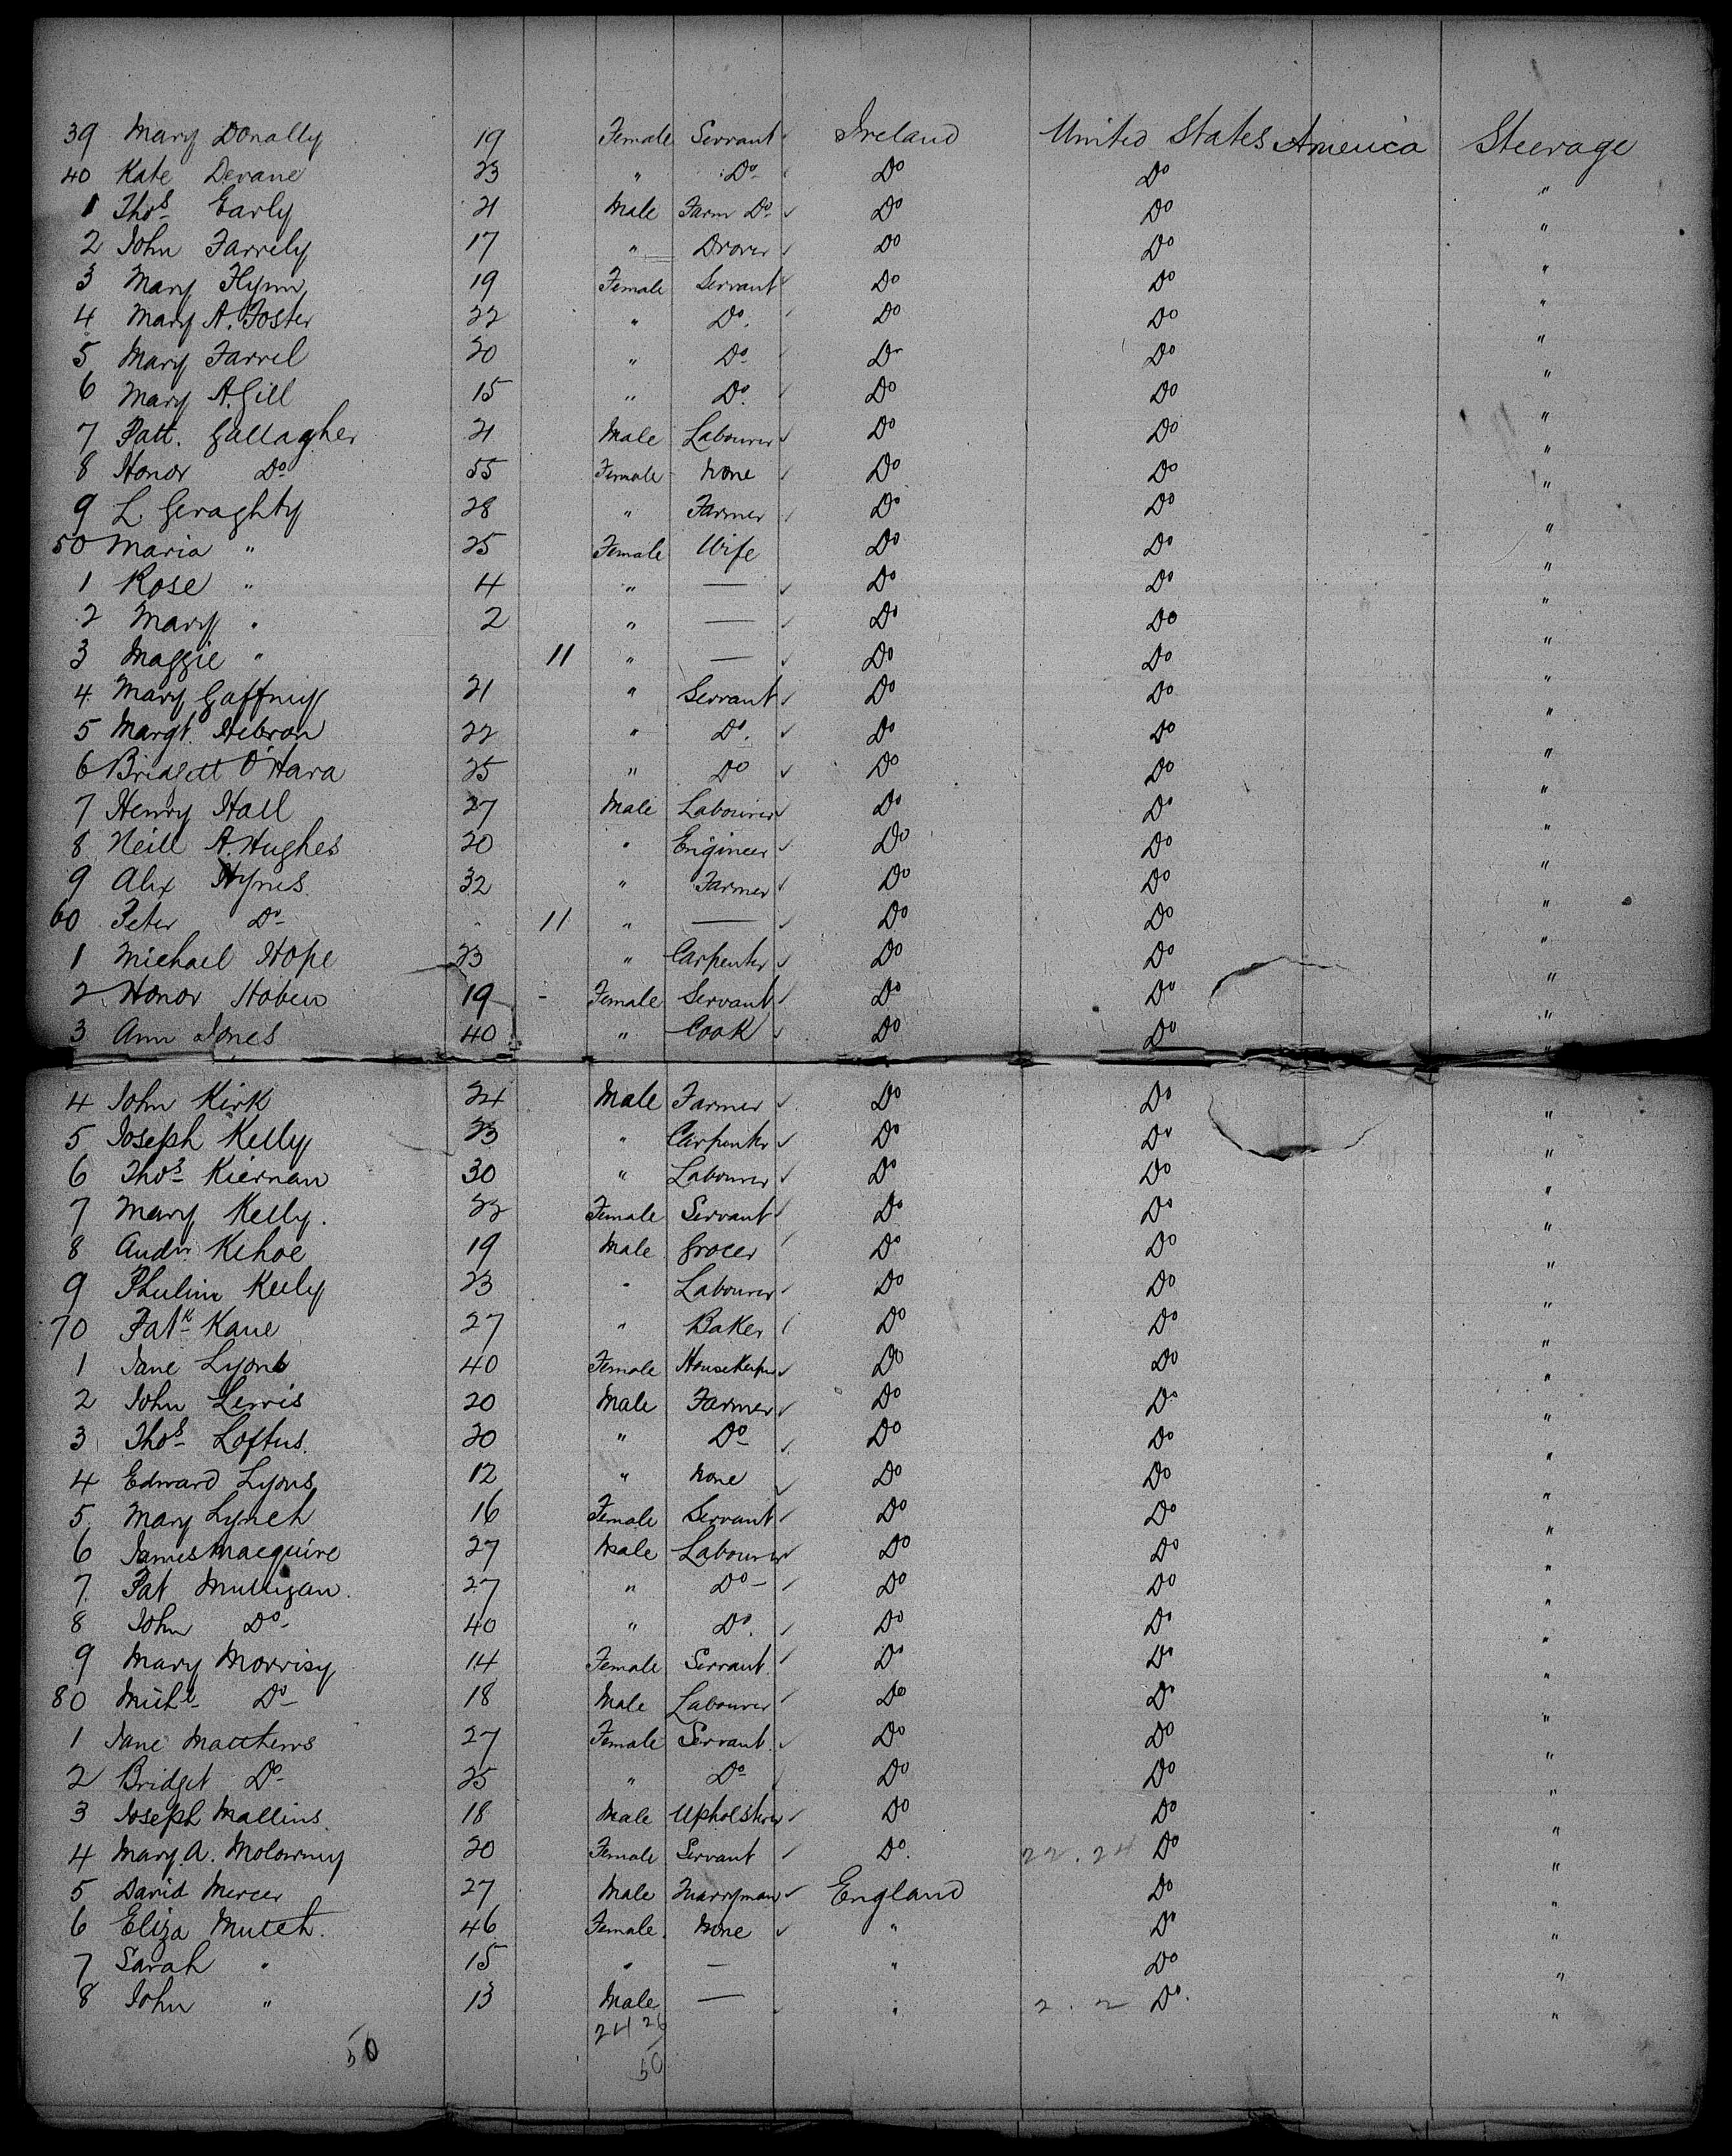 39 Mary Donally 19 Female Servant Ireland United States America Steerage
40 Kate Devane 23 " Do Do Do "
1 Thos Early 21 Male Farm Do Do Do "
2 John Farrely 17 " Drover Do Do "
3 Mary Flynn 19 Female Servant Do Do "
4 Mary A. Foster 22 " Do. Do Do "
5 Mary Farrel 20 " Do Do Do "
6 Mary A. Gill 15 " Do. Do Do "
7 Patt. Gallagher 21 Male Labourer Do Do "
8 Honor Do 55 Female None Do Do "
9 L. Geraghty 28 " Farmer Do Do "
50 Maria " 25 Female Wife Do Do "
1 Rose " 4 " — Do Do "
2 Mary " 2 " — Do Do "
3 Maggie " 11 " — Do Do "
4 Mary Gaffniy 21 " Servant Do Do "
5 Margt. Hebron 22 " Do. Do Do "
6 Bridgett O'Hara 25 " Do Do Do "
7 Henry Hall 27 Male Labourer Do Do "
8 Neill A. Hughes 20 " Engineer Do Do "
9 Alex Hynes 32 " Farmer Do Do "
60 Peter Do 11 " — Do Do "
1 Michael Hope 23 " Carpenter Do Do "
2 Honor Hoben 19 - Female Servant Do Do "
3 Ann Jones 40 " Cook Do Do "
4 John Kirk 24 Male Farmer Do Do "
5 Joseph Kelly 23 " Carpenter Do Do "
6 Thos Kiernan 30 " Labourer Do Do "
7 Mary Kelly. 22 Female Servant Do Do "
8 Andw Kehoe 19 Male Grocer Do Do "
9 Phelim Keely 23 " Labourer Do Do "
70 Patk Kane 27 " Baker Do Do "
1 Jane Lyons 40 Female HouseKeeper Do Do "
2 John Lewis 20 Male Farmer Do Do "
3 Thos Loftus. 20 " Do Do Do "
4 Edward Lyons 12 " None Do Do "
5 Mary Lynch 16 Female Servant Do Do "
6 James Macquire 27 Male Labourer Do Do "
7. Pat Mulligan. 27 " Do Do Do "
8 John Do 40 " Do. Do Do "
9 Mary Morrisy 14 Female Servant Do Do "
80 Michl Do 18 Male Labourer Do Do "
1 Jane Matthews 27 Female Servant. Do Do "
2 Bridget Do 25 " Do Do Do "
3 Joseph Mallins. 18 Male Upholsterer Do Do "
4 Mary A. Molowny 20 Female Servant Do. 22. 24 Do "
5 David Mercer 27 Male England Do "
6 Eliza Mutch. 46 Female. None " Do "
7 Sarah " 15 " — " Do "
8 John " 13 Male — " 2. 2 Do. "
24 26
50 50